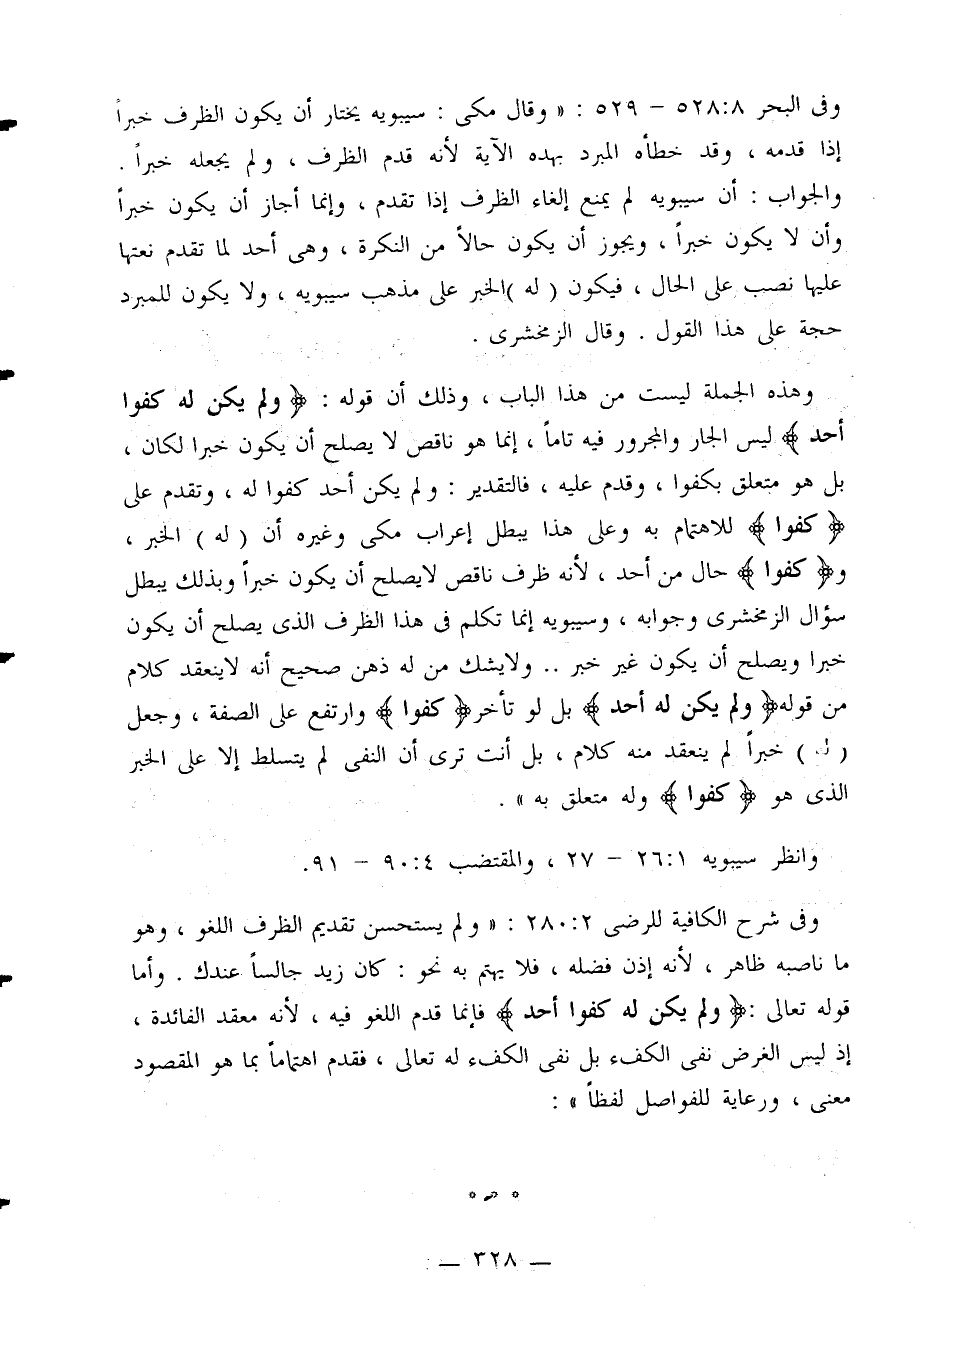 وفى البحر ٥٢٨:٨ – ٥٢٩ : « وقال مكى : سيبويه يختار أن يكون الظرف خبراً
إذا قدمه ، وقد خطأه المبرد بهده الآية لأنه قدم الظرف ، ولم يجعله خبراً .
والجواب : أن سيبويه لم يمنع إلغاء الظرف إذا تقدم ، وإنما أجاز أن يكون خبراً
وأن لا يكون خبراً ، ويجوز أن يكون حالاً من النكرة ، وهى أحد لما تقدم نعتها
عليها نصب على الحال ، فيكون ( له )الخبر على مذهب سيبويه ، ولا يكون للمبرد
حجة على هذا القول . وقال الزمخشرى .
وهذه الجملة ليست من هذا الباب ، وذلك أن قوله : ﴿ ولم يكن له كفوا
أحد ﴾ ليس الجار والمجرور فيه تاماً ، إنما هو ناقص لا يصلح أن يكون خبرا لكان ،
بل هو متعلق بكفوا ، وقدم عليه ، فالتقدير : ولم يكن أحد كفوا له ، وتقدم على
﴿ كفوا ﴾ للاهتمام به وعلى هذا يبطل إعراب مكى وغيره أن ( له ) الخبر ،
و﴿ كفوا ﴾ حال من أحد ، لأنه ظرف ناقص لايصلح أن يكون خبراً وبذلك يبطل
سؤال الزمخشرى وجوابه ، وسيبويه إنما تكلم فى هذا الظرف الذى يصلح أن يكون
خبرا ويصلح أن يكون غير خبر .. ولايشك من له ذهن صحيح أنه لاينعقد كلام
من قوله﴿ ولم يكن له أحد ﴾ بل لو تأخر﴿ كفوا ﴾ وارتفع على الصفة ، وجعل
( له ) خبراً لم ينعقد منه كلام ، بل أنت ترى أن النفى لم يتسلط إلا على الخبر
الذى هو ﴿ كفوا ﴾ وله متعلق به » .
وانظر سيبويه ٢٦:١ – ٢٧ ، والمقتضب ٩٠:٤ – ٩١.
وفى شرح الكافية للرضى ٢٨٠:٢ : « ولم يستحسن تقديم الظرف اللغو ، وهو
ما ناصبه ظاهر ، لأنه إذن فضله ، فلا يهتم به نحو : كان زيد جالساً عندك . وأما
قوله تعالى :﴿ ولم يكن له كفوا أحد ﴾ فإنما قدم اللغو فيه ، لأنه معقد الفائدة ،
إذ ليس الغرض نفى الكفء بل نفى الكفء له تعالى ، فقدم اهتماماً بما هو المقصود
معنى ، ورعاية للفواصل لفظاً » :
* * *
— ٣٢٨ —